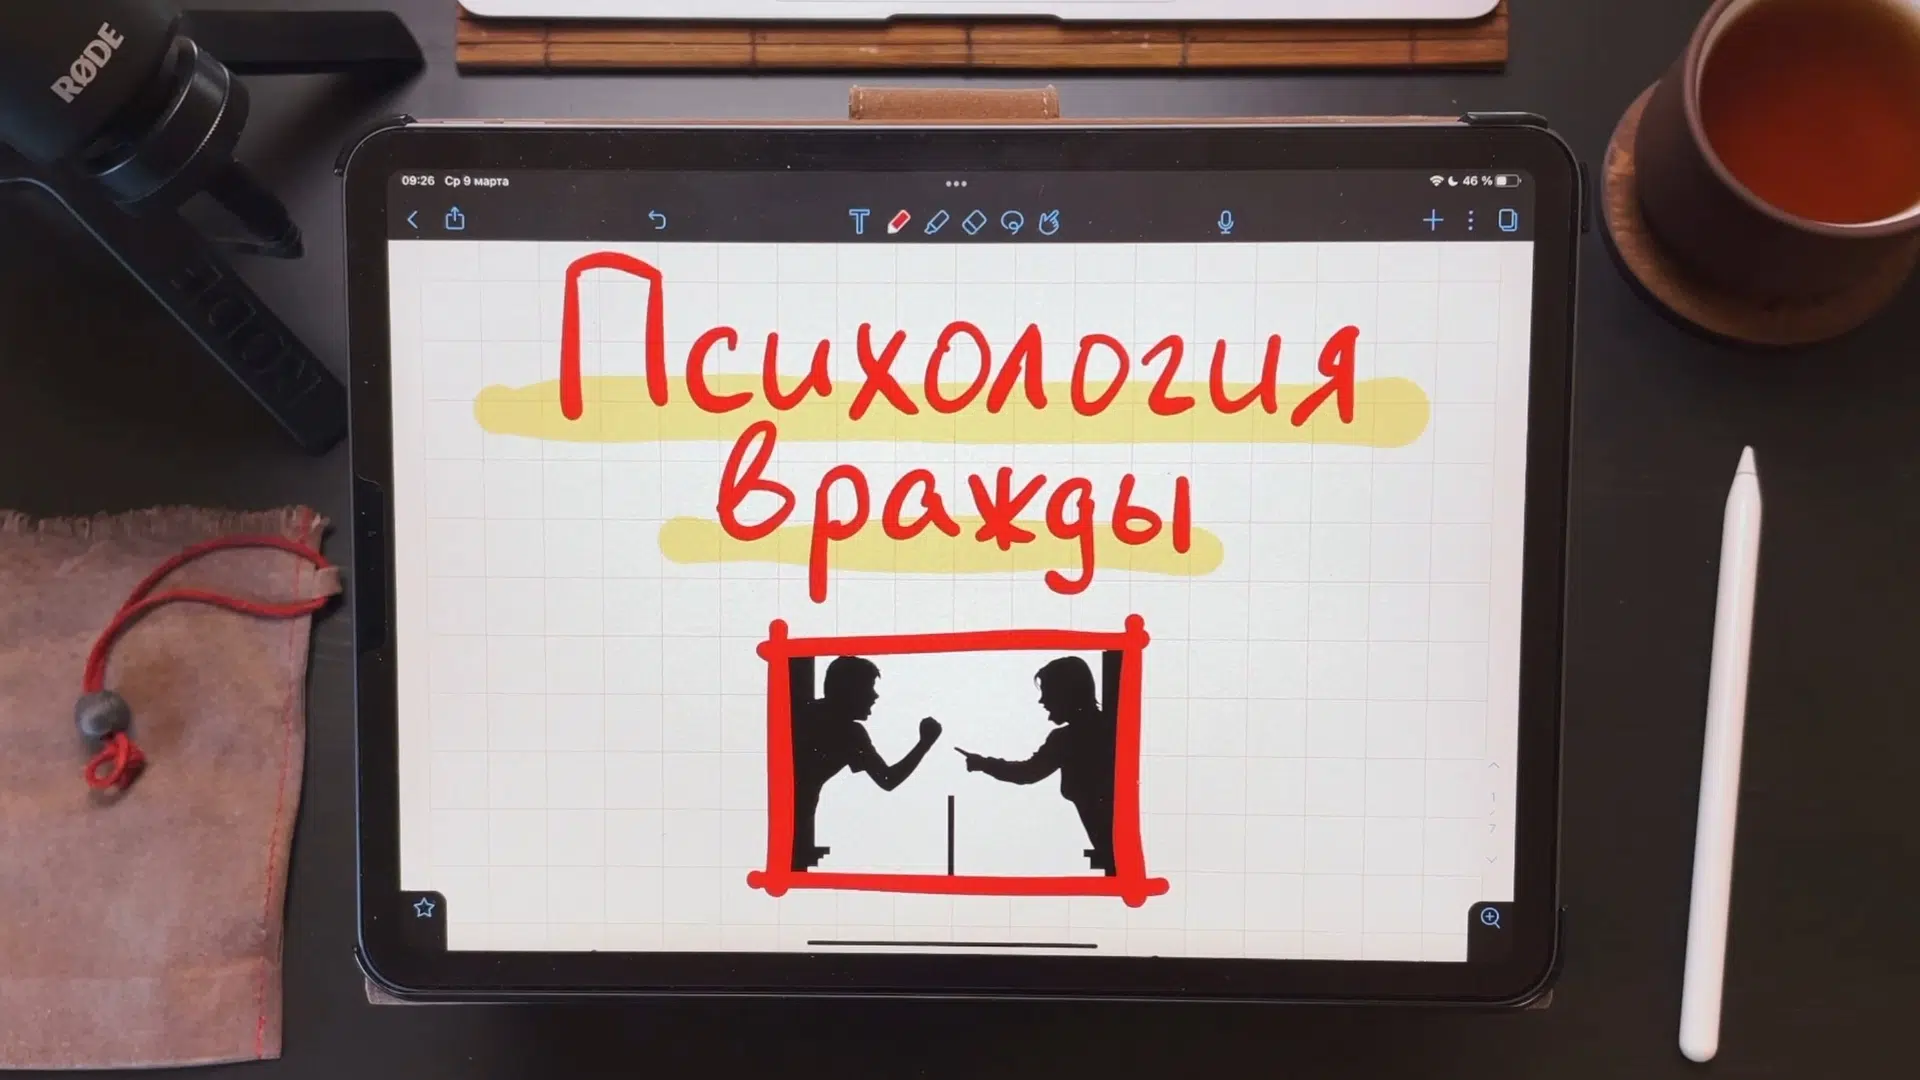 RØDE
RODE
09:26 Ср 9 марта
46 %
Психология
вражды
1
7